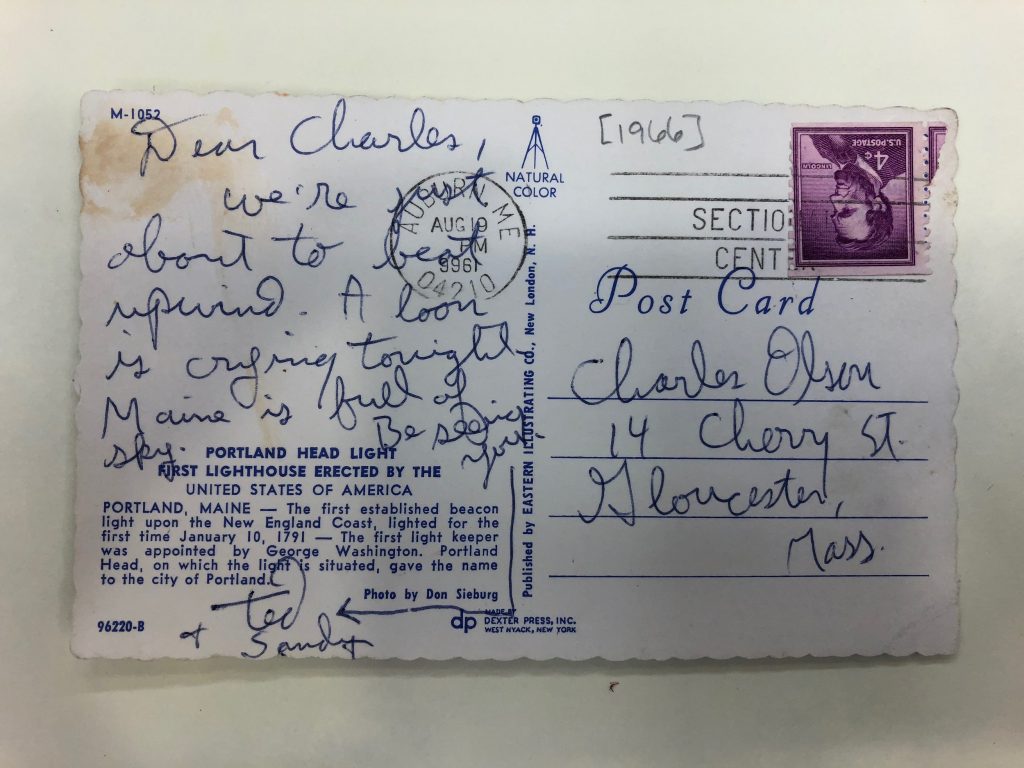 M-1052
Dear Charles,
we're just
about to beat
upwind. A loon
is crying tonight
Maine is full of
sky.
Be seeing
you,
PORTLAND HEAD LIGHT
FIRST LIGHTHOUSE ERECTED BY THE
UNITED STATES OF AMERICA
PORTLAND, MAINE — The first established beacon
light upon the New England Coast, lighted for the
first time January 10, 1791 — The first light keeper
was appointed by George Washington. Portland
Head, on which the light is situated, gave the name
to the city of Portland.
Photo by Don Sieburg
Ted
+ Sandy
96220-B
dp
MADE BY
DEXTER PRESS, INC.
WEST NYACK, NEW YORK
NATURAL
COLOR
AUBURN ME
AUG 19
PM
1966
04210
Published by EASTERN ILLUSTRATING CO., New London, N. H.
[1966]
SECTIO
CENT
U.S. POSTAGE
4¢
LINCOLN
Post Card
Charles Olson
14 Cherry St.
Gloucester,
Mass.